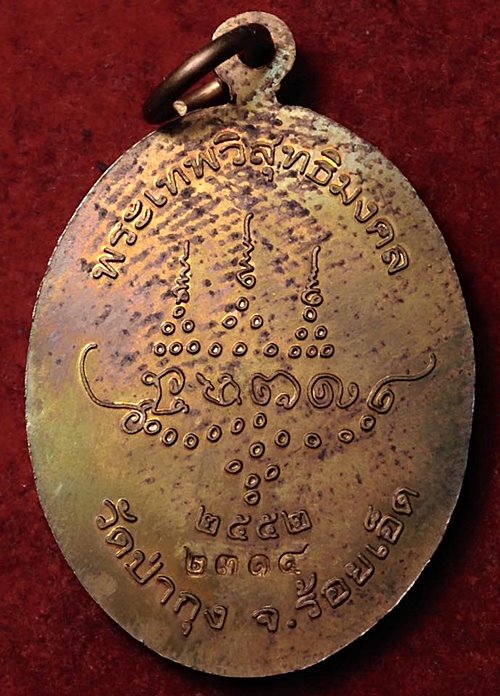 พระเทพวิสุทธิมงคล
๒๕๕๒
๒๓๑๔
วัดป่ากุง จ.ร้อยเอ็ด